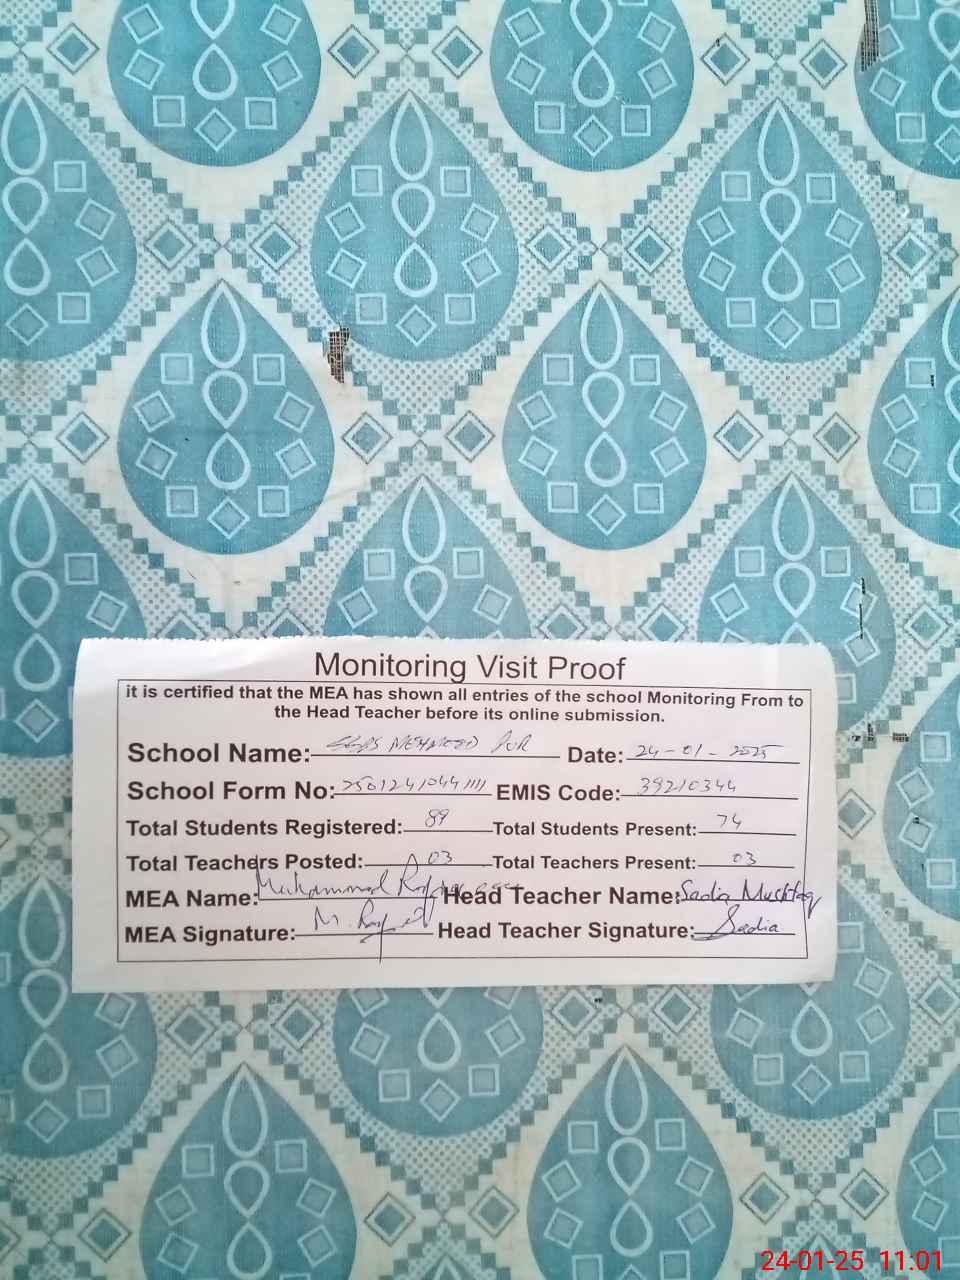 Monitoring Visit Proof
it is certified that the MEA has shown all entries of the school Monitoring From to
the Head Teacher before its online submission.
School Name: MEHMOOD PUR Date: 24-01-2025
School Form No: EMIS Code: 39210344
Total Students Registered: 89 Total Students Present: 74
Total Teachers Posted: 03 Total Teachers Present: 03
MEA Name: Muhammad Head Teacher Name: Sadia Mushtaq
MEA Signature: M. Head Teacher Signature: Sadia
24-01-25 11:01